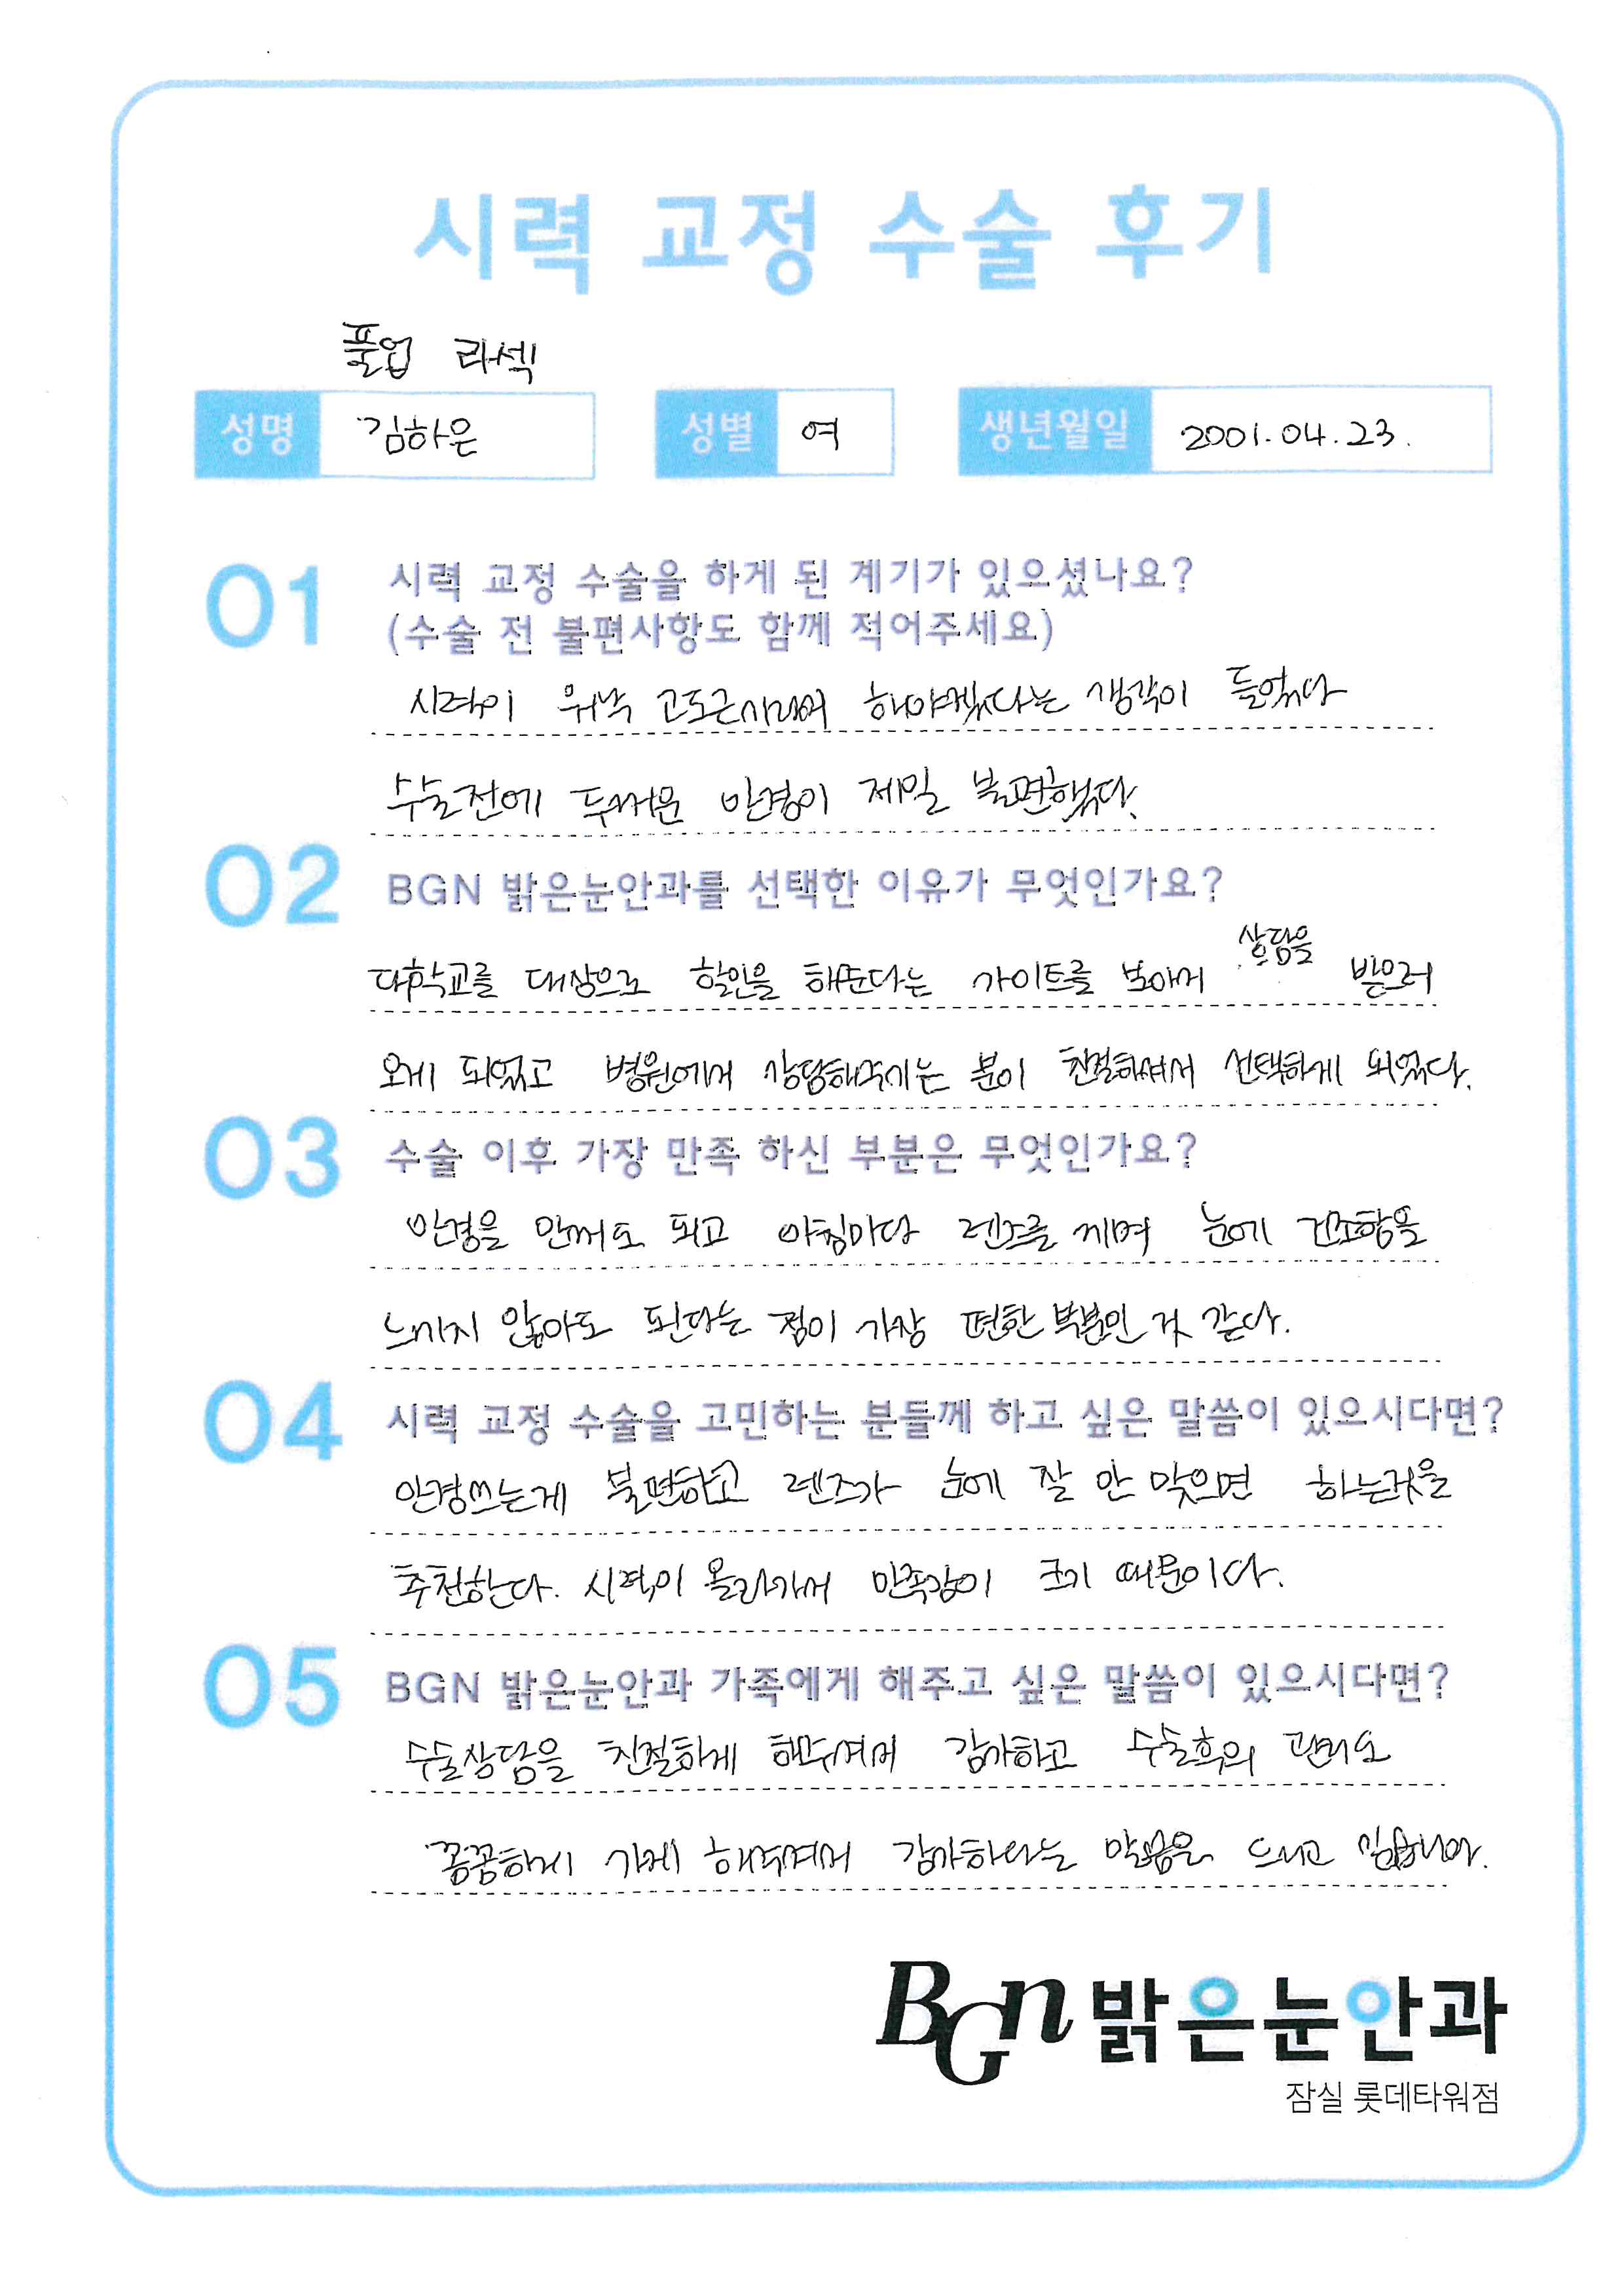 시력 교정 수술 후기
풀업 라섹
성명 김하은 성별 여 생년월일 2001.04.23.
01 시력 교정 수술을 하게 된 계기가 있으셨나요?
(수술 전 불편사항도 함께 적어주세요)
시력이 워낙 고도근시라서 해야겠다는 생각이 들었다
수술전에 두꺼운 안경이 제일 불편했다.
02 BGN 밝은눈안과를 선택한 이유가 무엇인가요?
대학교를 대상으로 할인을 해준다는 사이트를 보아서 상담을 받으러
오게 되었고 병원에서 상담해주시는 분이 친절하셔서 선택하게 되었다.
03 수술 이후 가장 만족 하신 부분은 무엇인가요?
안경을 안껴도 되고 아침마다 렌즈를 끼며 눈에 건조함을
느끼지 않아도 된다는 점이 가장 편한 부분인 것 같다.
04 시력 교정 수술을 고민하는 분들께 하고 싶은 말씀이 있으시다면?
안경쓰는게 불편하고 렌즈가 눈에 잘 안 맞으면 하는것을
추천한다. 시력이 올라가서 만족감이 크기 때문이다.
05 BGN 밝은눈안과 가족에게 해주고 싶은 말씀이 있으시다면?
수술상담을 친절하게 해주셔서 감사하고 수술후의 관리도
꼼꼼하게 해주셔서 감사하다는 말씀을 드리고 싶습니다.
BGN 밝은눈안과
잠실 롯데타워점